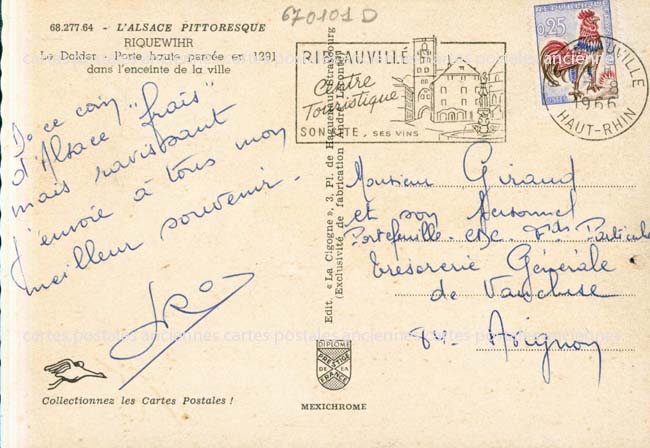 670101 D
68.277.64 - L'ALSACE PITTORESQUE
RIQUEWIHR
Le Dolder - Porte haute percée en 1291
dans l'enceinte de la ville
De ce coin "frais"
d'Alsace
mais ravissant
j'envoie à tous mon
meilleur souvenir.
Edit. « La Cigogne », 3, Pl. de Haguenau, Strasbourg
(Exclusivité de fabrication André Leconte)
RIBEAUVILLÉ
Centre
Touristique
SON SITE, SES VINS
0,25
POSTES
1966
HAUT-RHIN
Monsieur Giraud
et son personnel
Portefeuille - Particuliers
Trésorerie Générale
de Vaucluse
84. Avignon
cartes postales anciennes cartes postales anciennes cartes postales anciennes
DIPLOME
PRESTIGE
DE LA
FRANCE
Collectionnez les Cartes Postales !
MEXICHROME